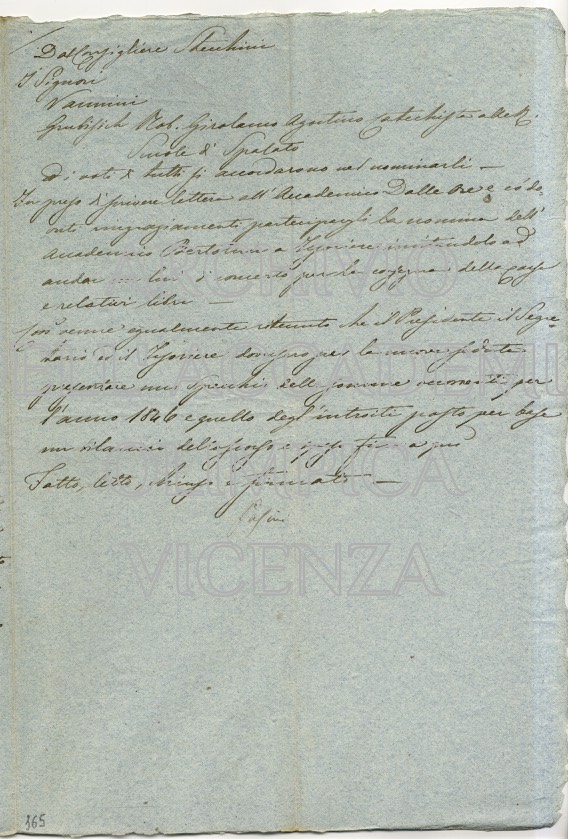 Dal Consigliere Stecchini
I Signori
Vannini
Grubisich Nob. Girolamo Agostino Catechista alle R.
Scuole di Spalato
Ed i voti di tutti si accordarono nel nominarli —
Fu preso di scrivere lettera all' Accademico Dalle Ore e
ringraziamenti partecipargli la nomina dell'
Accademico Bertolini a Tesoriere invitandolo ad
andar di concerto per la consegna della Cassa
e relativi libri —
Convenne egualmente ritenuto che il Presidente il Segre-
tario ed il Tesoriere dovessero per la nuova seduta
presentare uno specchio delle somme occorrenti per
l'anno 1846 e quello degl'introiti posto per base
un bilancio dell'
Fatto, letto, chiuso e firmato —
ARCHIVIO
L'ACCADEMIA
OLIMPICA
VICENZA
365